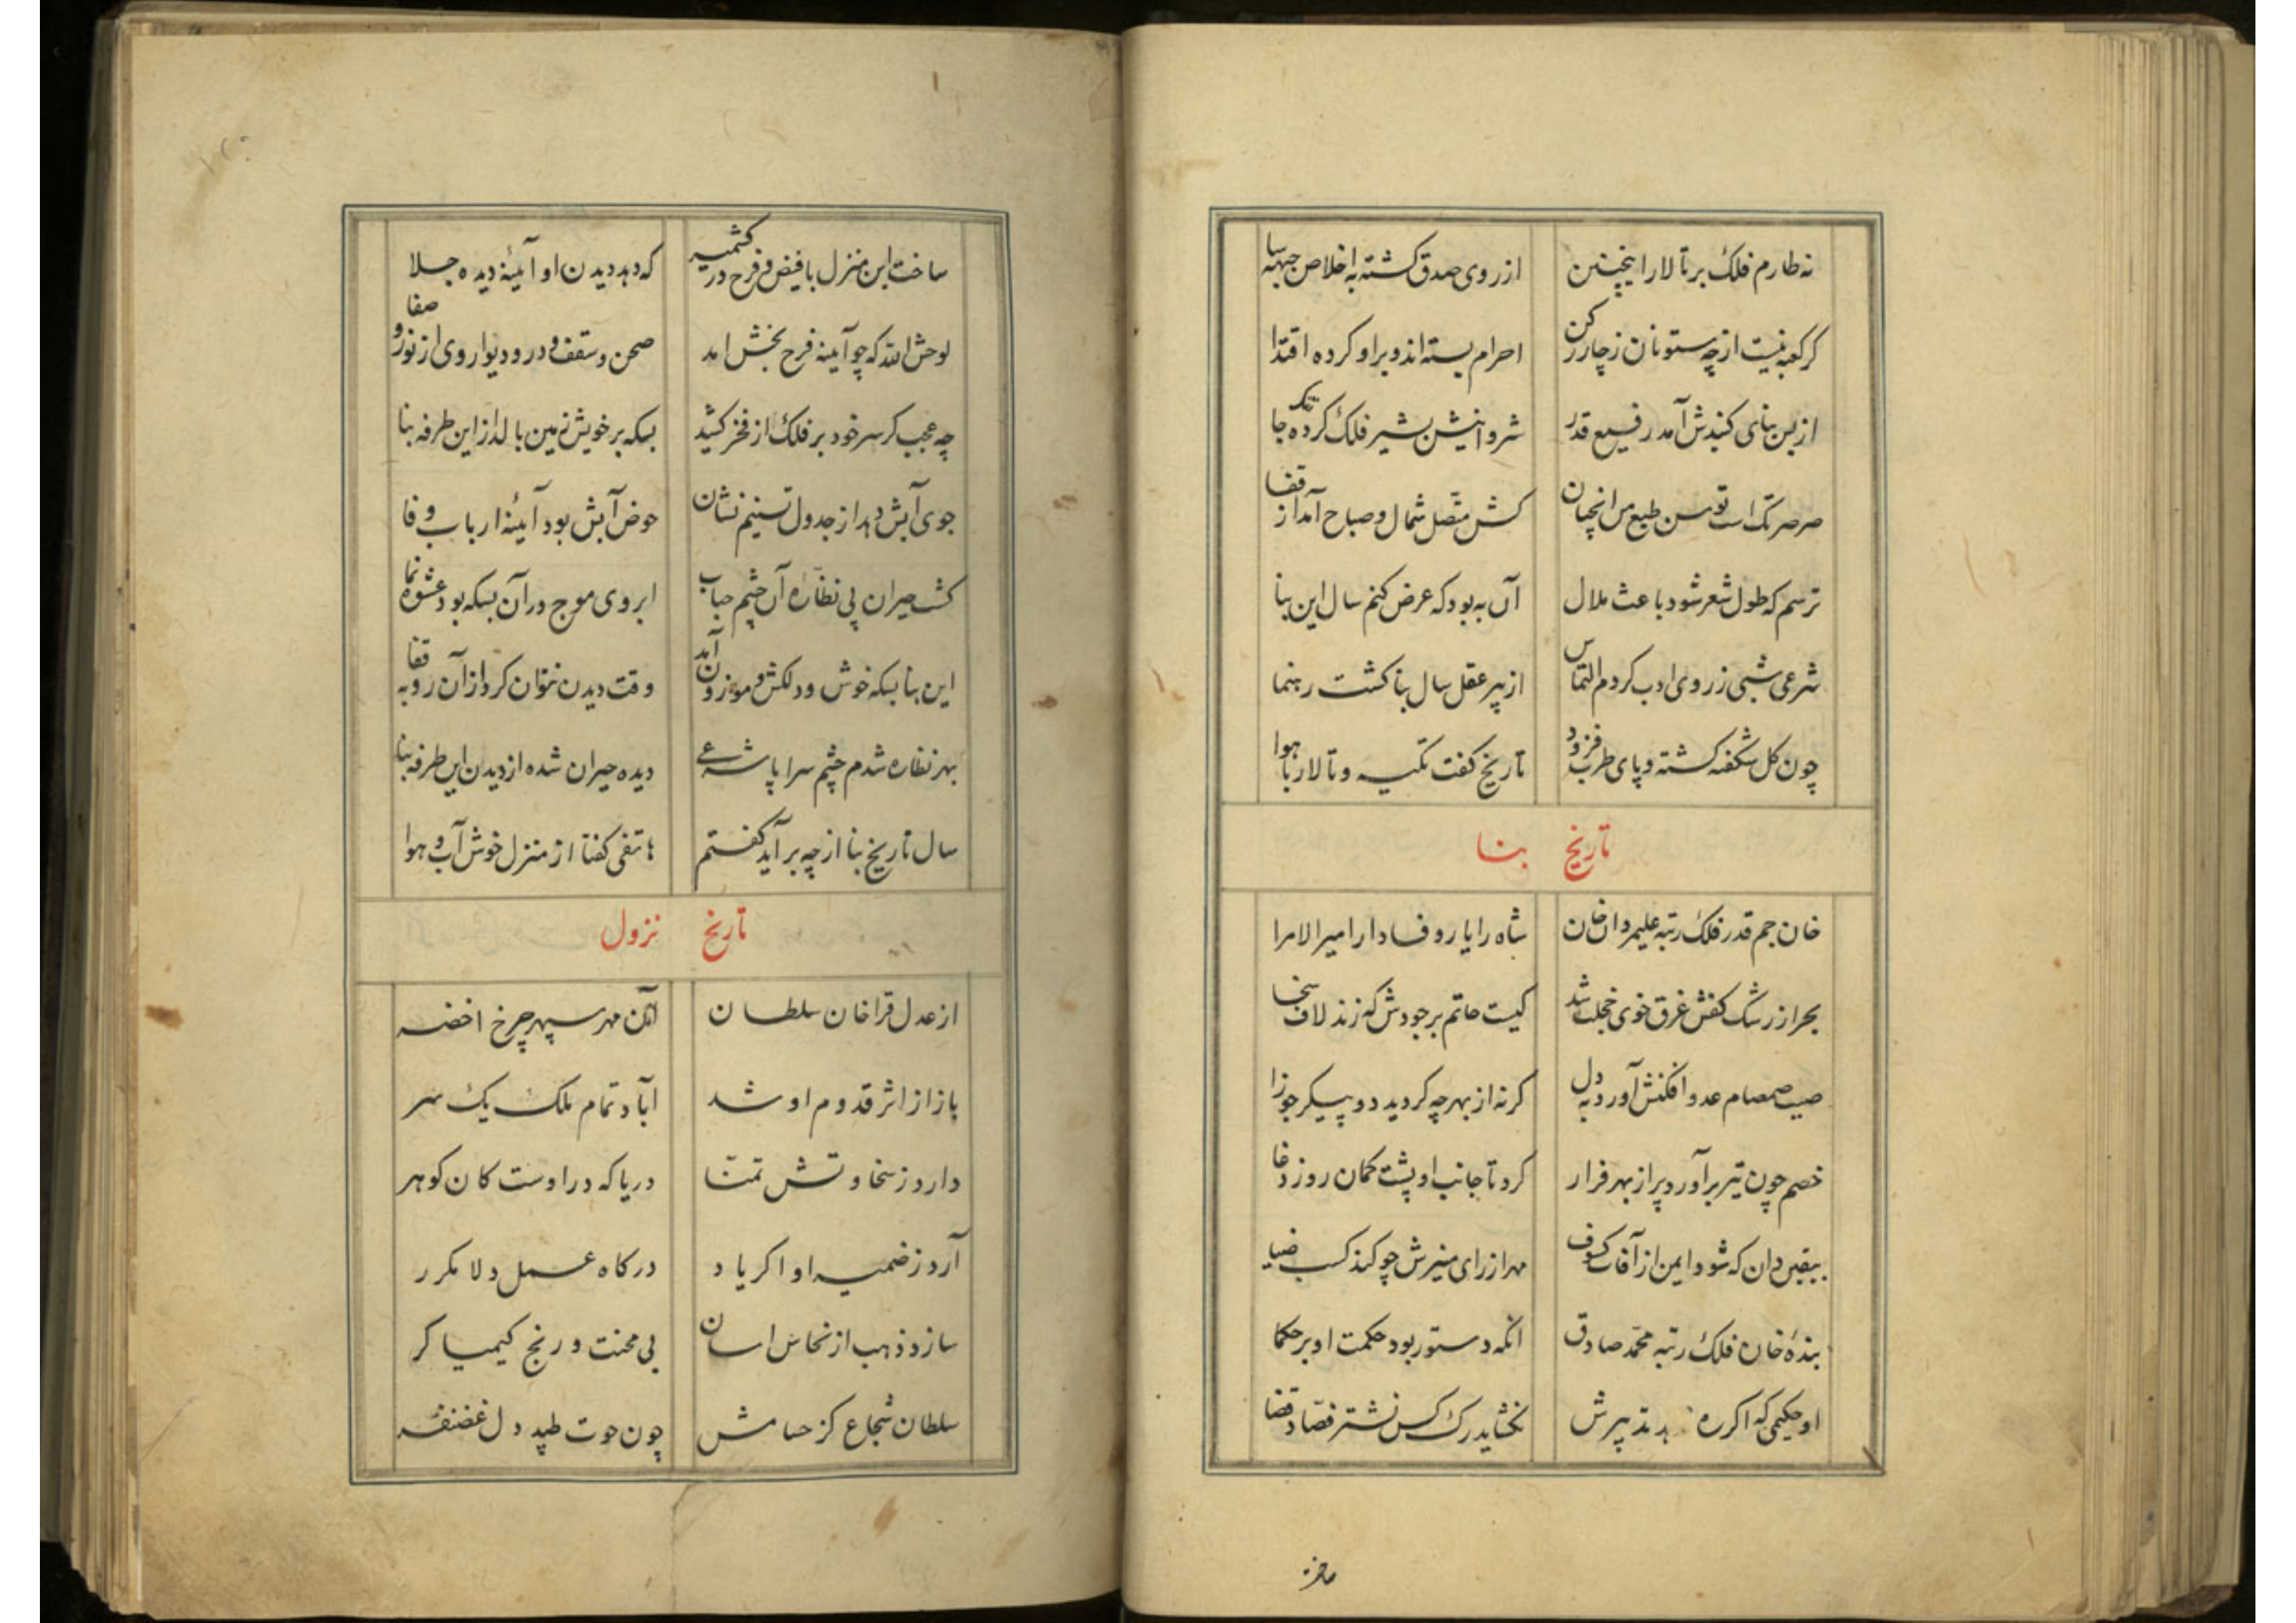 نه طارم فلک بر تالار اینچنین
از روی صدق کشته باخلاص جبهه سا
کر کعبه نیست از چه ستونان ز چار رکن
احرام بسته اند و براو کرده اقتدا
از بس بنای کنبدش آمد رفیع قدر
شروانیش بشیر فلک کرده تنک جا
صرصر تک است توسن طبع من انچنان
کش متصل شمال و صباح آمد از قفا
ترسم که طول شعر شود باعث ملال
آن به بود که عرض کنم سال این بنا
شرعی شبی ز روی ادب کردم التماس
از پیر عقل سال بنا کشت رهنما
چون کل شکفته کشته و پای طرب فزود
تاریخ کفت تکیه و تالار با هوا
تاریخ بنا
خان جم قدر فلک رتبه علیمردان خان
شاه را یار وفادار امیر الامرا
بحر از رشک کفش غرق خوی خجلت شد
کیست حاتم بر جودش که زند لاف سخا
صیت صمصام عدو افکنش آورد به دل
کرنه از بهر چه کردید دو پیکر جوزا
خصم چون تیر برآورد پر از بهر فرار
کرد تا جانب او پشت کمان روز وغا
بیقین دان که شود ایمن از آفات کسوف
مهر از رای منیرش چو کند کسب ضیا
بندهٔ خان فلک رتبه محمد صادق
انکه دستور بود حکمت او بر حکما
او حکیمی که اکر ره ندهد تدبیرش
نخشاید رک کس نشتر فصاد قضا
ساخت
ساخت این منزل با فیض و فرح در کشمیر
که دهد دیدن او آینهٔ دیده جلا
لوحش الله که چو آینه فرح بخش امد
صحن و سقف و در و دیوار وی از نور و صفا
چه عجب کر سر خود بر فلک از فخر کشید
بسکه بر خویش زمین بالد از این طرفه بنا
جوی آبش دهد از جدول تسنیم نشان
حوض آبش بود آینهٔ ارباب وفا
کشت حیران پی نظارهٔ آن چشم حباب
ابروی موج در آن بسکه بود عشوه نما
این بنا بسکه خوش و دلکش و موزون آمد
وقت دیدن نتوان کرد از آن رو به قفا
بهر نظاره شدم چشم سراپا شرعی
دیده حیران شده از دیدن این طرفه بنا
سال تاریخ بنا از چه برآید کفتم
هاتفی کفتا از منزل خوش آب و هوا
تاریخ نزول
از عدل قراخان سلطان
آن مهر سپهر چرخ اخضر
باز از اثر قدوم او شد
آباد تمام ملک یک سر
دارد ز سخاوتش تمنا
دریا که در اوست کان کوهر
آرد ز ضمیر او اکر یاد
درکاه عمل دلا مکرر
سازد ذهب از نحاس اسان
بی محنت و رنج کیمیا کر
سلطان شجاع کز حسامش
چون حوت طپد دل غضنفر